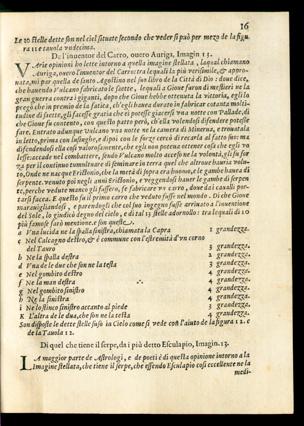 16
Le 20 stelle dette son nel ciel situate secondo che veder si può per mezo della figura 11 e tavola undecima.
De l'inuentor del Carro, ouero Auriga, Imagin 13.
VArie opinioni ho lette intorno a questa imagine stellata, laqual chiamano
Auriga, ouero l'inuentor del Carro: tra le quali la più verisimile, & approuata,
mi par quella di santo Agostino nel suo libro de la Città di Dio: doue dice,
che hauendo Vulcano fabricato le saette, lequali a Gioue furon di mestieri ne la
gran guerra contra i giganti, dopo che Gioue hebbe ottenuta la vittoria, egli in
pregio che in premio de la fatica, ch'egli haueua durato in fabricar cotanta moltitudine
di saette, gli facesse gratia che si potesse giacersi vna notte con Pallade, di
che Gioue fu contento, con questo patto però, ch'ella volendosi difendere potesse
fare. Entrato adunque Vulcano vna notte ne la camera di Minerua, e trouatala
in letto, prima con lusinghe, e dipoi con le forze cercò di recarla al fatto suo: ma
difendendosi ella così valorosamente, che egli non poteua ottener cosa che egli volesse:
accade nel combattere, sendo Vulcano molto acceso ne la volontà, gli fu forza
per il continuo tumultuare di seminare in terra quel che altroue hauria voluto,
Onde ne nacque Erittonio, che la metà di sopra era huomo, e le gambe haueua di
serpente. venuto poi negli anni Erittonio, e vergognandosi hauer le gambe di serpente,
perche vedute manco gli fussero, fe fabricare vn curro, doue dai caualli portar
si facea. E questo fu il primo carro che veduto fusse nel mondo. Di che Gioue
marauigliandosi, e parendogli che col suo ingegno fusse arriuato a l'inuentione
del Sole, lo giudicò degno del cielo, e di tal 13 stelle adornollo: tra le quali di 10
più famose farò mentione. e son queste.
a Vna lucida ne la spalla sinistra, chiamata la Capra 1 grandezza.
e Nel Calcagno destro, & è commune con l'estremità d'vn corno
del Tauro 3 grandezza.
b Ne la spalla destra 2 grandezza.
d Vna de le due che son ne la testa 4 grandezza.
e Nel gombito destro 4 grandezza.
f Ne la man destra 4 grandezza.
g Nel gombito sinistro 4 grandezza.
h Ne la sinistra 4 grandezza.
i Ne lo stinco sinistro accanto al piede 3 grandezza.
K L'altra de le due, che son ne la testa 4 grandezza.
Son disposte le dette stelle suso in Cielo come si vede con l'aiuto de la figura 12. e
de la Tauola 12.
Di quel che tiene il serpe, da i più detto Esculapio, Imagin. 13.
LA maggior parte de Astrologi, e de poeti è di questa opinione intorno a la
Imagine stellata, che tiene il serpe, che essendo Esculapio così eccellente ne la
medi-